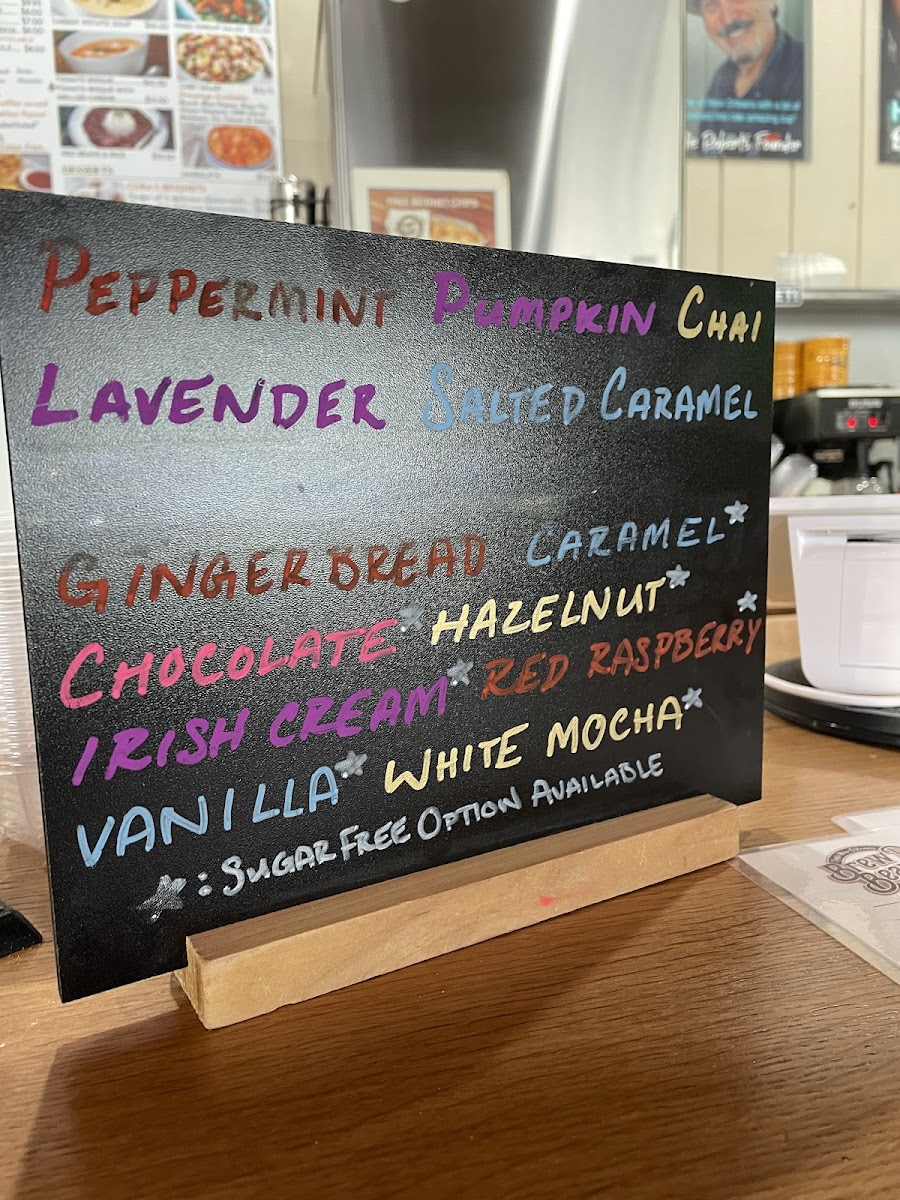 Peppermint Pumpkin Chai
Lavender Salted Caramel
Gingerbread Caramel*
Chocolate* Hazelnut*
Irish Cream* Red Raspberry*
Vanilla* White Mocha*
*: Sugar Free Option Available
Founder